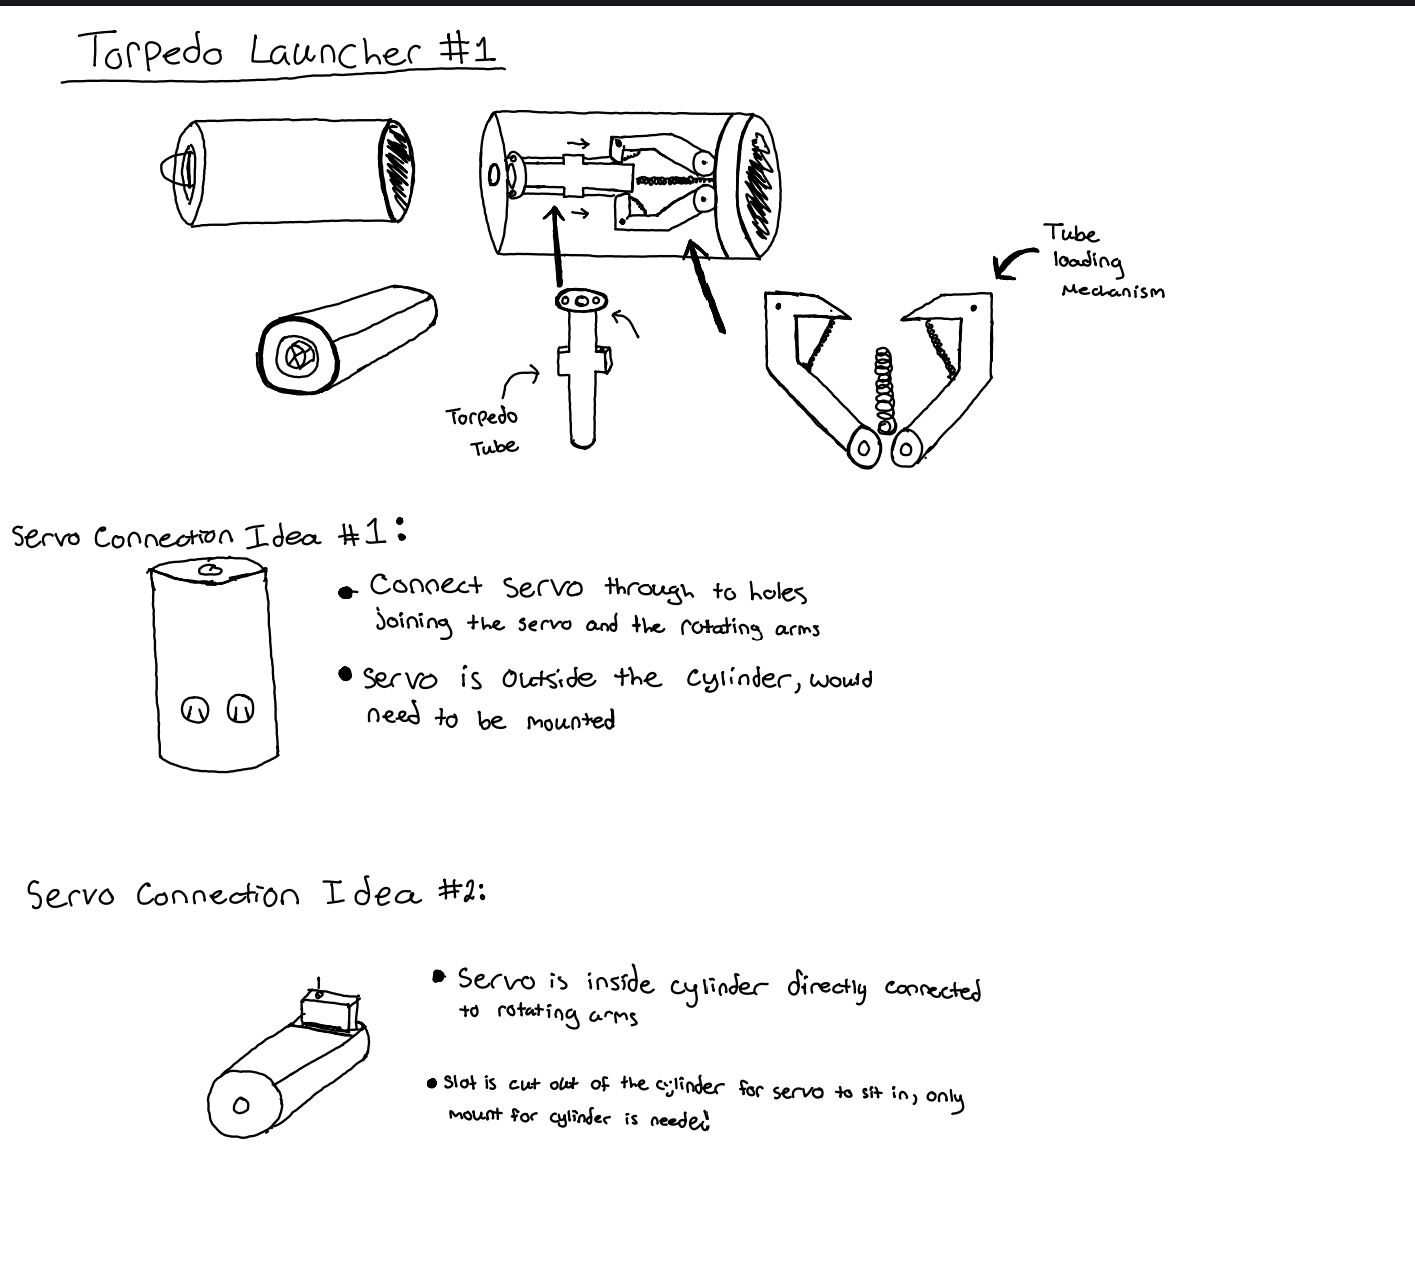 Torpedo Launcher #1
Tube
loading
Mechanism
Torpedo
Tube
Servo Connection Idea #1:
• Connect Servo through to holes
joining the servo and the rotating arms
• Servo is outside the cylinder, would
need to be mounted
Servo Connection Idea #2:
• Servo is inside cylinder directly connected
to rotating arms
• Slot is cut out of the cylinder for servo to sit in, only
mount for cylinder is needed